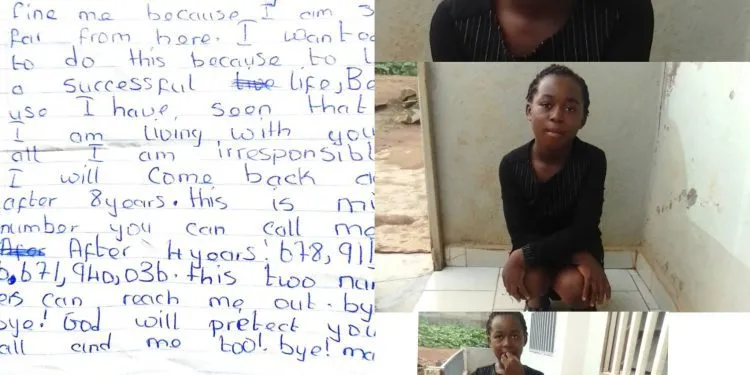 fine me because I am
far from here. I want
to do this because to
a successful life, Be
use I have, soon that
I am living with you
all I am irresponsibl
I will come back a
after 8years. this is mi
number you can call me
After 4years! 678,911
6,671,940,036. this two
ers can reach me out. by
bye! God will pretect you
all and me too! bye! ma